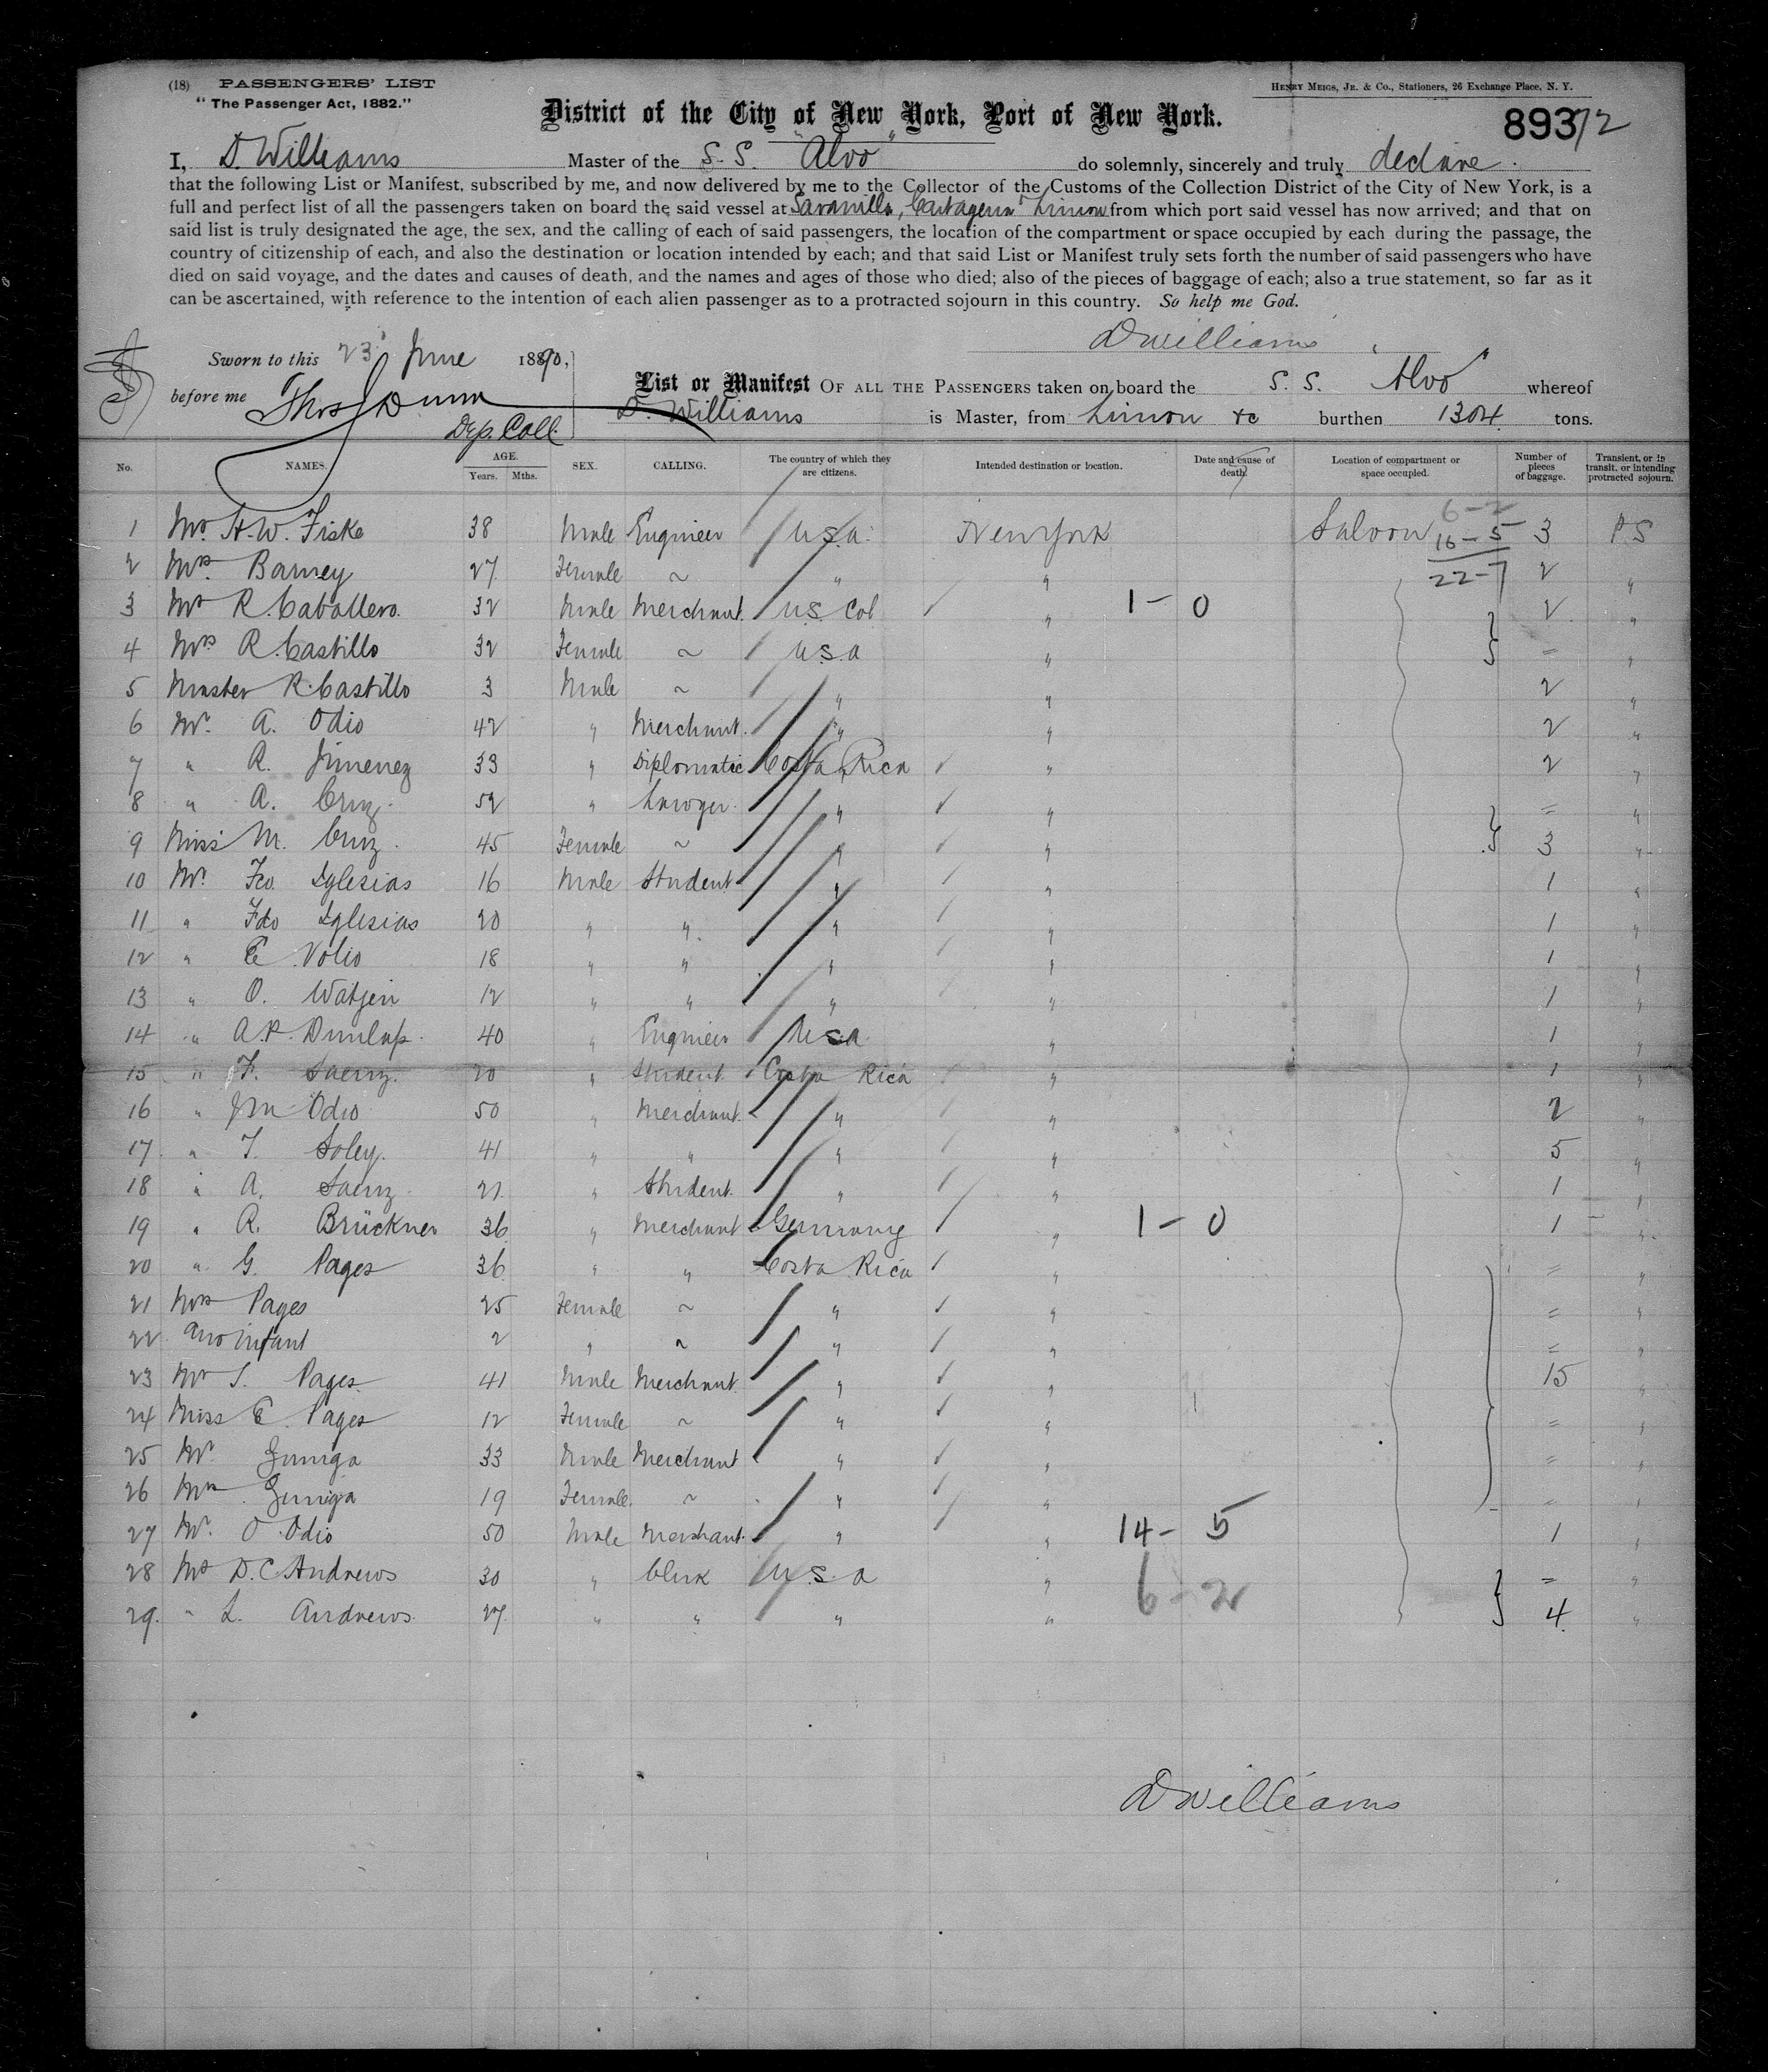 (18) PASSENGERS' LIST
HENRY MEIGS, JR. & CO., Stationers, 26 Exchange Place, N. Y.
"The Passenger Act, 1882."
District of the City of New York, Port of New York.
893/72
I, D. Williams Master of the S. S. "Alvo" do solemnly, sincerely and truly declare.
that the following List or Manifest, subscribed by me, and now delivered by me to the Collector of the Customs of the Collection District of the City of New York, is a
full and perfect list of all the passengers taken on board the said vessel at Savanilla, Cartagena Limon from which port said vessel has now arrived; and that on
said list is truly designated the age, the sex, and the calling of each of said passengers, the location of the compartment or space occupied by each during the passage, the
country of citizenship of each, and also the destination or location intended by each; and that said List or Manifest truly sets forth the number of said passengers who have
died on said voyage, and the dates and causes of death, and the names and ages of those who died; also of the pieces of baggage of each; also a true statement, so far as it
can be ascertained, with reference to the intention of each alien passenger as to a protracted sojourn in this country. So help me God.
DWilliams
Sworn to this 23 June 1890,
before me Thos J Dunn
Dep. Coll.
List or Manifest OF ALL THE PASSENGERS taken on board the S. S. Alvo whereof
D. Williams is Master, from Limon &c burthen 1304 tons.
No. NAMES. AGE. Years. Mths. SEX. CALLING. The country of which they are citizens. Intended destination or location. Date and cause of death. Location of compartment or space occupied. Number of pieces of baggage. Transient, or in transit, or intending protracted sojourn.
6-2
1 Mr. H. W. Fiske 38 Male Engineer U.S.A. New York Saloon 16-5 3 P.S
2 Mrs. Barney 27 Female ~ " " 22-7 2 "
3 Mr R. Caballero. 32 Male Merchant. U.S. Col " 1-0 2 "
4 Mrs R. Castillo 32 Female ~ U.S.A " = "
5 Master R. Castillo 3 Male ~ " " 2 "
6 Mr. A. Odio 42 " Merchant. " " 2 "
7 " R. Jimenez 33 " Diplomatic Costa Rica " 2 "
8 " A. Cruz. 52 " Lawyer. " " = "
9 Miss M. Cruz. 45 Female ~ " " 3 "
10 Mr. Fco. Iglesias 16 Male Student " " 1 "
11 " Fdo Iglesias 20 " " " " 1 "
12 " E. Volio 18 " " " " 1 "
13 " O. Watjen 12 " " " " 1 "
14 " A.P. Dunlap. 40 " Engineer U.S.A " 1 "
15 " F. Saenz. 20 " Student Costa Rica " 1 "
16 " Jn Odio 50 " Merchant. " " 2 "
17. " T. Soley. 41 " " " " 5 "
18 " A. Saenz 21. " Student. " " 1 "
19 " R. Brückner 36 " Merchant Germany " 1-0 1 "
20 " G. Pages 36 " " Costa Rica " = "
21 Mrs Pages 25 Female ~ " " = "
22 and Infant 2 " ~ " " = "
23 Mr S. Pages 41 Male Merchant. " " 15 "
24 Miss E. Pages 12 Female ~ " " = "
25 Mr. Zuniga 33 Male Merchant " " = "
26 Mrs Zuniga 19 Female ~ " " = "
27 Mr. O Odio 50 Male Merchant. " " 14-5 1 "
28 Mr D. C Andrews 30 " Clerk U.S.A " 6-2 = "
29. " L. Andrews. 27. " " " " 4 "
DWilliams